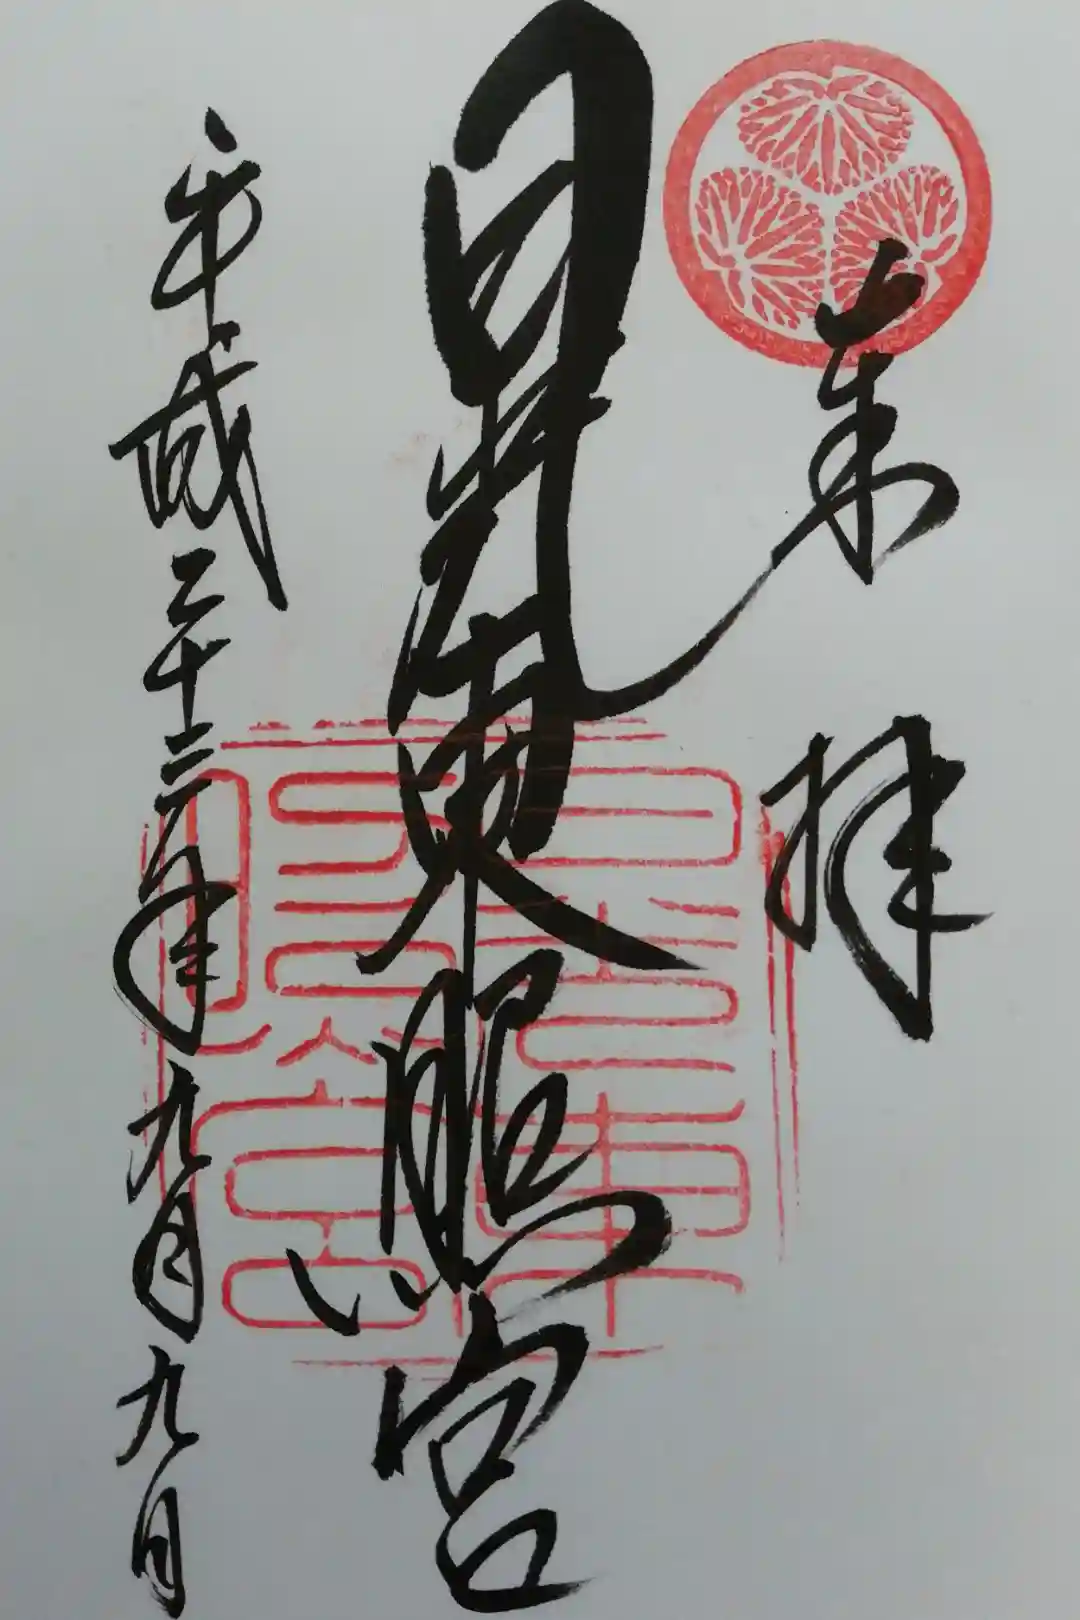 奉拝
日光東照宮
平成二十三年九月九日